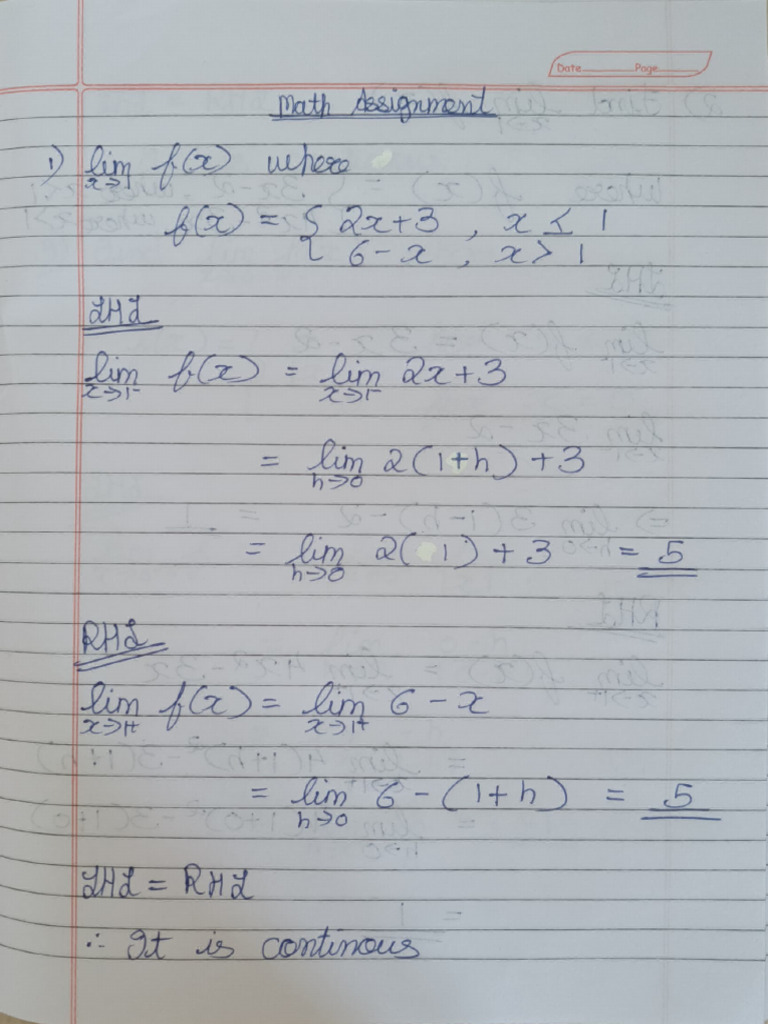 Date Page
Math Assignment
1) lim x→1 f(x) where
f(x) = { 2x+3 , x ≤ 1
{ 6-x , x > 1
LHL
lim x→1⁻ f(x) = lim x→1⁻ 2x+3
= lim h→0 2(1+h)+3
= lim h→0 2( 1)+3 = 5
RHL
lim x→1+ f(x) = lim x→1+ 6-x
= lim h→0 6-(1+h) = 5
LHL = RHL
∴ It is continous